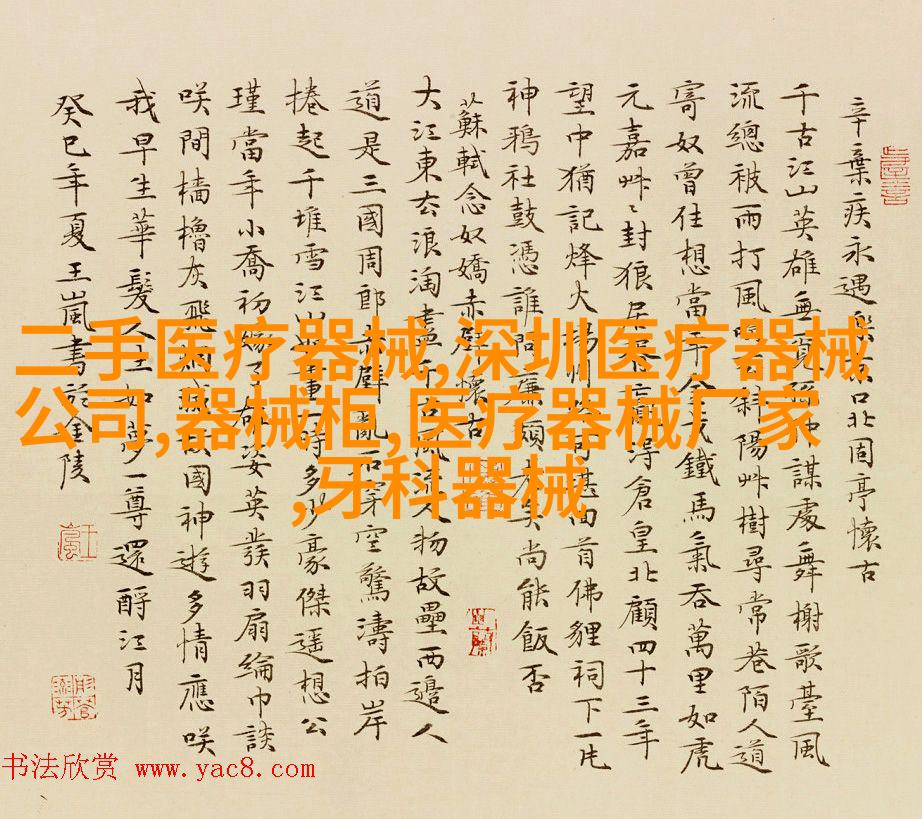 辛棄疾永遇樂京口北固亭懷古
千古江山英雄無覓孫仲謀處舞榭歌臺風
流總被雨打風吹去斜陽艸樹尋常巷陌人道
寄奴曾住想當年金戈鐵馬氣吞萬里如虎
元嘉艸〻封狼居胥贏得倉皇北顧四十三年
望中猶記烽火揚州路可堪回首佛貍祠下一片
神鴉社鼓憑誰問廉頗老矣尚能飯否
蘇軾念奴嬌赤壁懷古
大江東去浪淘盡千古風流人物故壘西邊人
道是三國周郎赤壁亂石穿空驚濤拍岸
捲起千堆雪江山如畫一時多少豪傑遥想公
瑾當年小喬初嫁了雄姿英發羽扇綸巾談
咲間檣櫓灰飛烟滅故國神遊多情應咲
我早生華髮人生如夢一尊還酹江月
癸巳年夏王嵐書於金陵
二手医疗器械,深圳医疗器械
公司,器械柜,医疗器械厂家
,牙科器械
书法欣赏 www.yac8.com